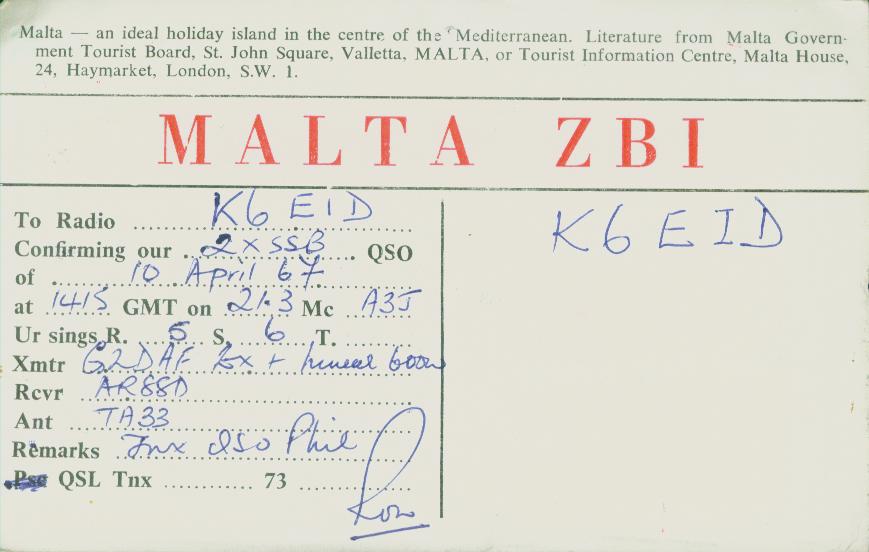 Malta — an ideal holiday island in the centre of the Mediterranean. Literature from Malta Govern-
ment Tourist Board, St. John Square, Valletta, MALTA, or Tourist Information Centre, Malta House,
24, Haymarket, London, S.W. 1.
MALTA ZBI
To Radio K6EID
Confirming our 2xSSB QSO
of 10 April 67
at 1415 GMT on 21.3 Mc A3J
Ur sings R. 5 S. 6 T.
Xmtr G2DAF Ex + linear 600w
Rcvr AR88D
Ant TA33
Remarks Tnx QSO Phil
Pse QSL Tnx 73
Ron
K6EID